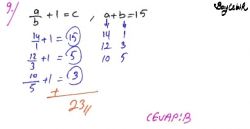 9.) a/b + 1 = c , a+b=15
14/1 + 1 = 15 14 1
12/3 + 1 = 5 12 3
10/5 + 1 = 3 10 5
+
23
CEVAP: B